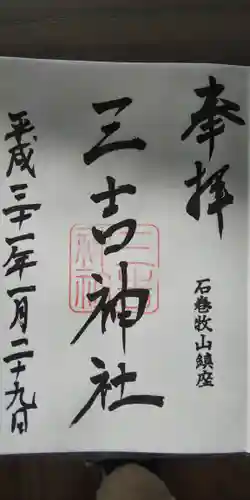 奉拝
石巻牧山鎮座
三吉神社
平成三十一年一月二十九日